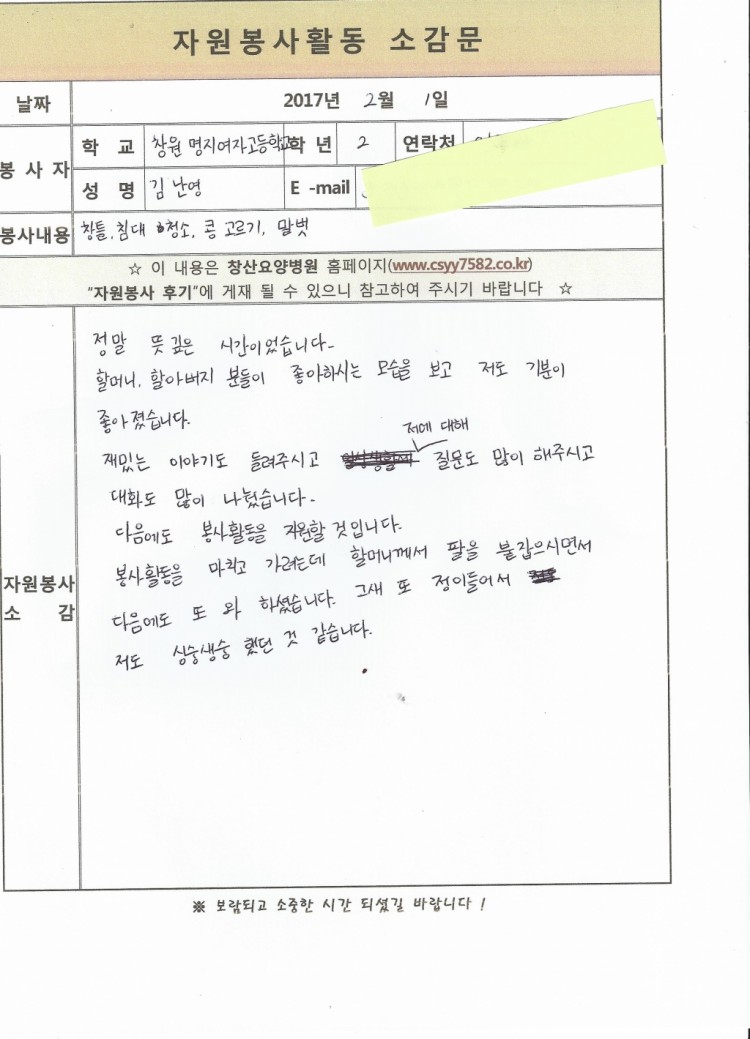 자원봉사활동 소감문
날짜 2017년 2월 1일
봉사자
학 교 창원 명지여자고등학교 학 년 2 연락처
성 명 김난영 E -mail
봉사내용 창틀, 침대 청소, 콩 고르기, 말벗
☆ 이 내용은 창산요양병원 홈페이지(www.csyy7582.co.kr)
"자원봉사 후기"에 게재 될 수 있으니 참고하여 주시기 바랍니다 ☆
자원봉사
소 감
정말 뜻 깊은 시간이었습니다.
할머니, 할아버지 분들이 좋아하시는 모습을 보고 저도 기분이
좋아졌습니다.
저에 대해
재밌는 이야기도 들려주시고 질문도 많이 해주시고
대화도 많이 나눴습니다.
다음에도 봉사활동을 지원할 것입니다.
봉사활동을 마치고 가려는데 할머니께서 팔을 붙잡으시면서
다음에도 또 와 하셨습니다. 그새 또 정이들어서
저도 싱숭생숭 했던 것 같습니다.
※ 보람되고 소중한 시간 되셨길 바랍니다 !